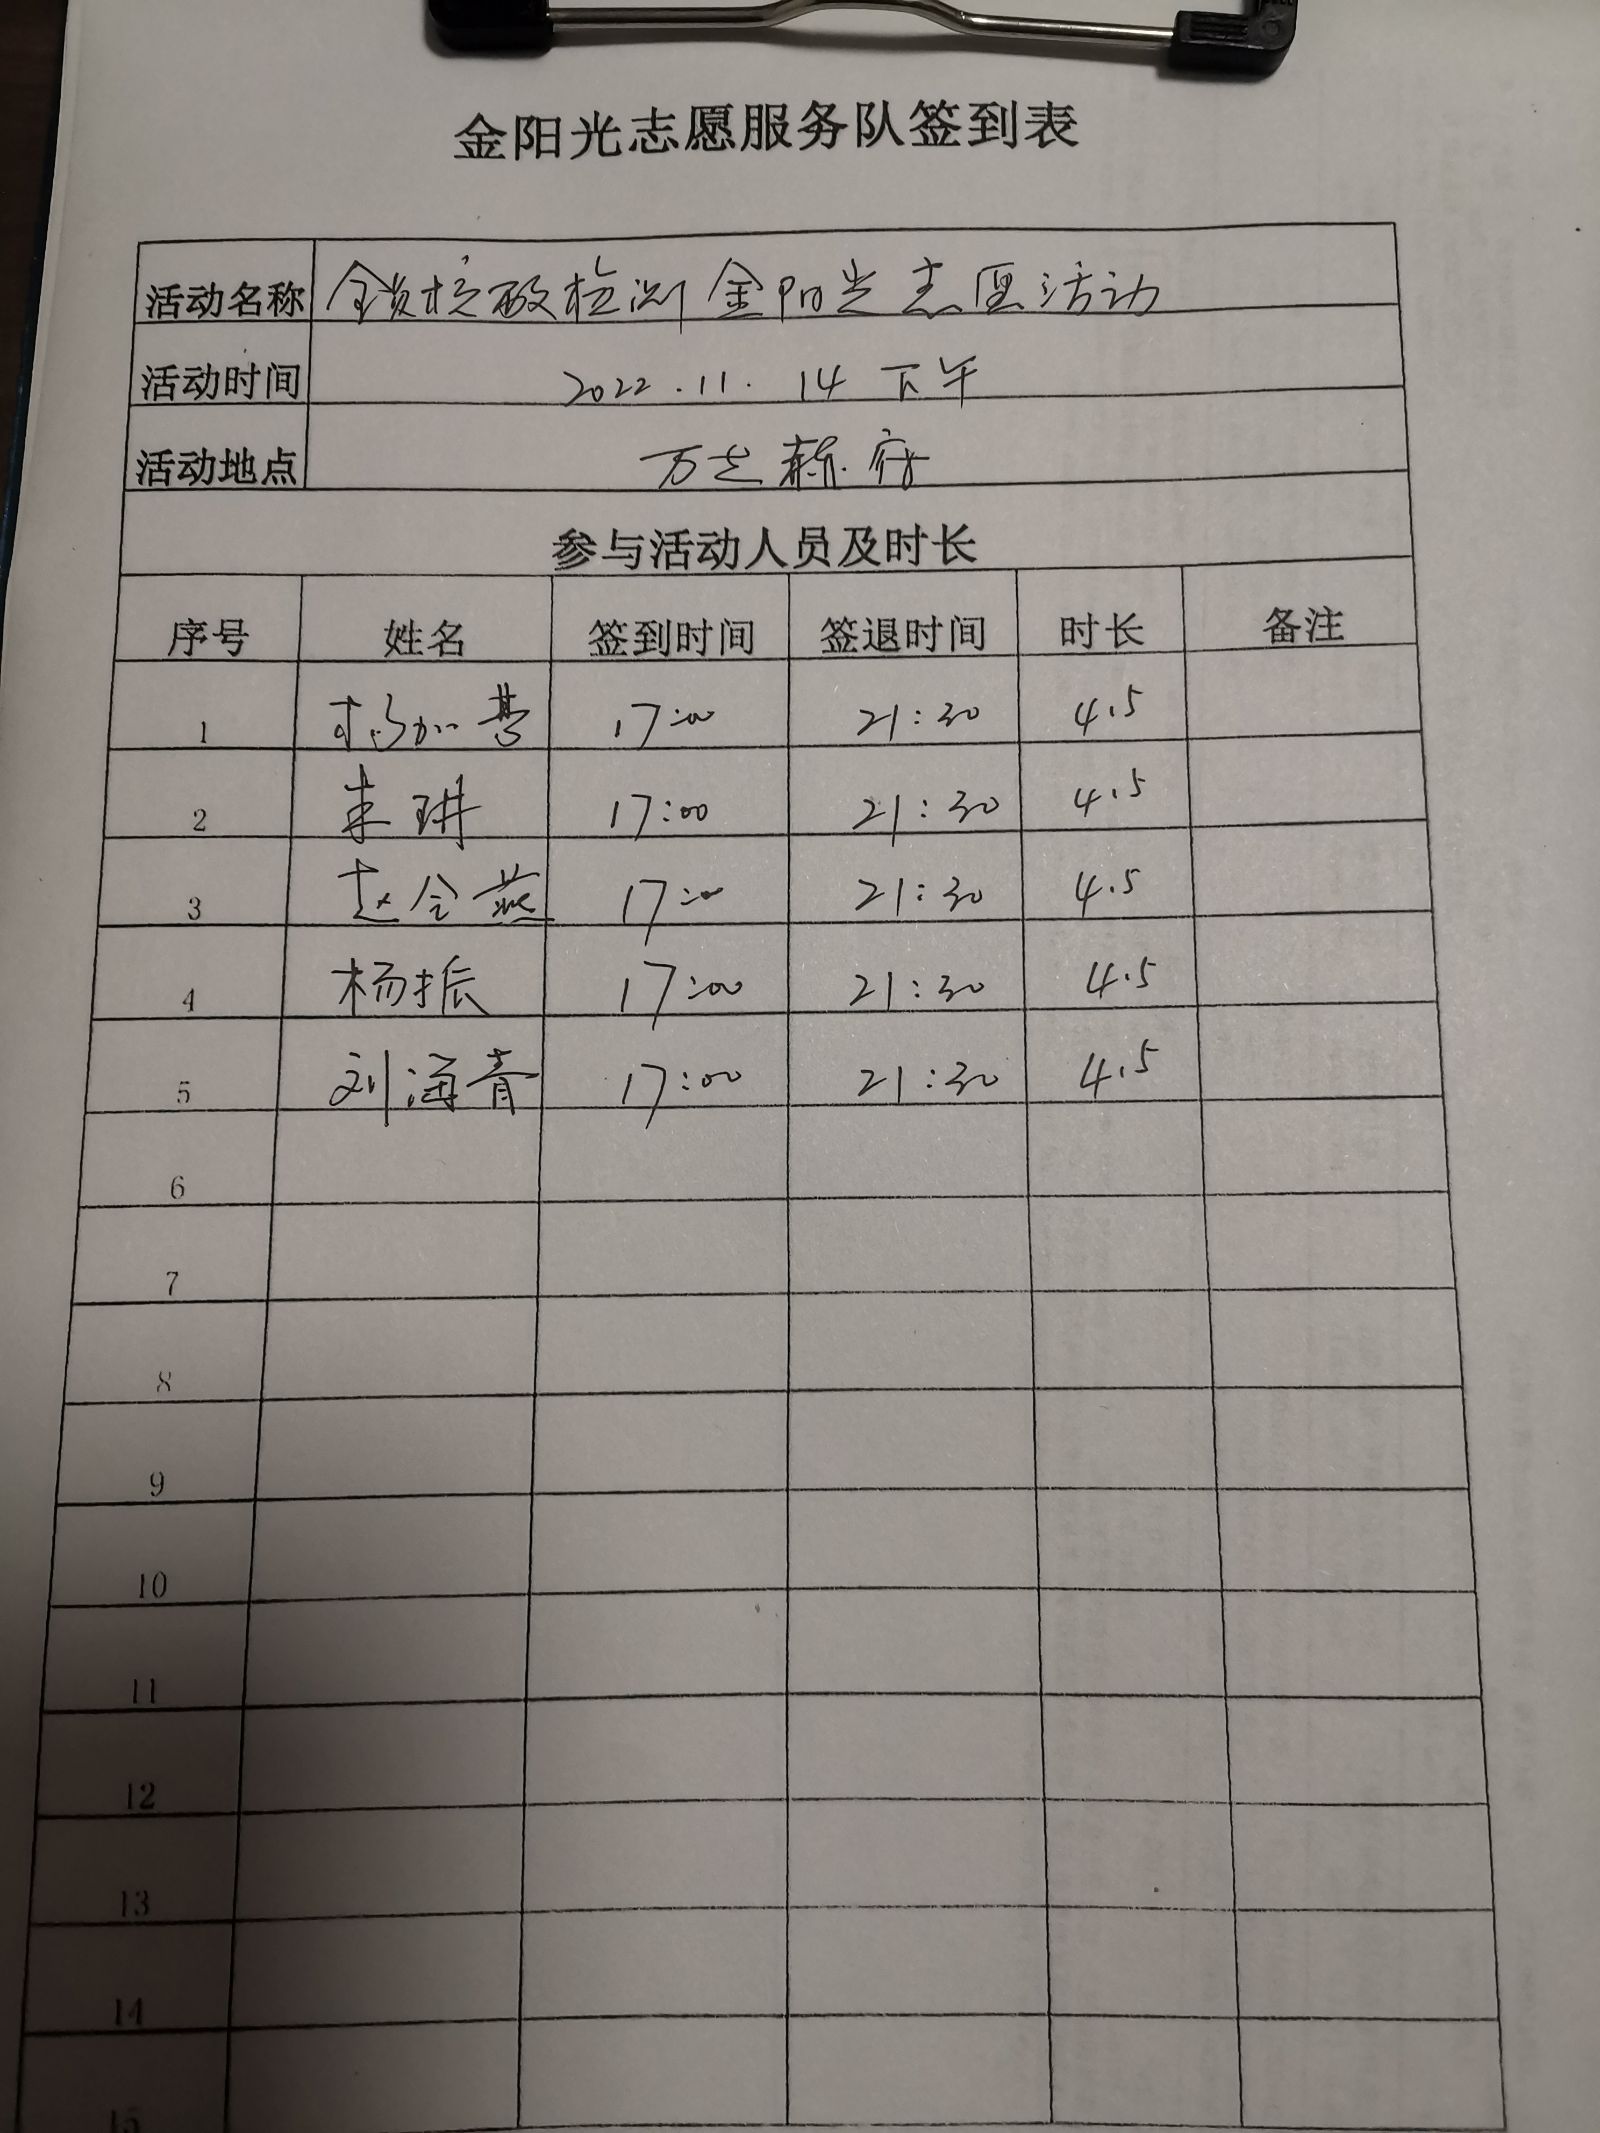 金阳光志愿服务队签到表
活动名称 全员核酸检测金阳光志愿活动
活动时间 2022.11.14下午
活动地点 万志
参与活动人员及时长
序号 姓名 签到时间 签退时间 时长 备注
1 17:00 21:30 4.5
2 17:00 21:30 4.5
3 赵会燕 17:00 21:30 4.5
4 杨振 17:00 21:30 4.5
5 刘海青 17:00 21:30 4.5
6
7
8
9
10
11
12
13
14
15